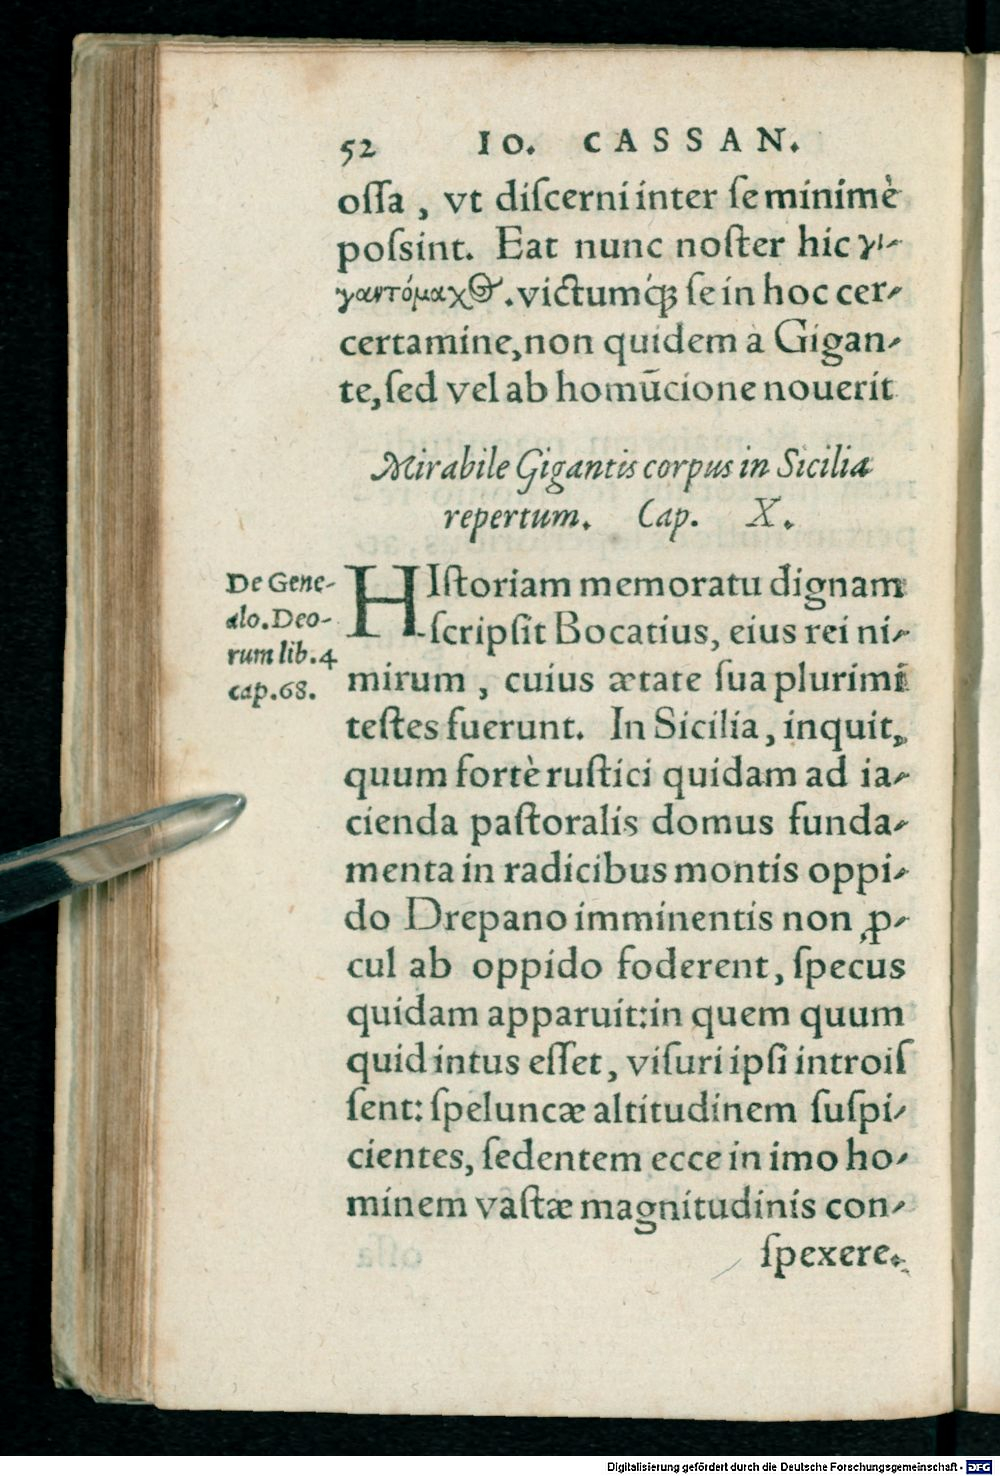 52 IO. CASSAN.
oſſa, vt diſcerni inter ſe minimè
poſsint. Eat nunc noſter hic γι-
γαντόμαχος. victumq́ꝫ ſe in hoc cer-
certamine, non quidem à Gigan-
te, ſed vel ab homūcione nouerit
Mirabile Gigantis corpus in Sicilia
repertum. Cap. X.
De Gene-
alo. Deo-
rum lib. 4
cap. 68.
HIſtoriam memoratu dignam
ſcripſit Bocatius, eius rei ni-
mirum, cuius ætate ſua plurimi
teſtes fuerunt. In Sicilia, inquit,
quum fortè ruſtici quidam ad ia-
cienda paſtoralis domus funda-
menta in radicibus montis oppi-
do Drepano imminentis non ꝓ-
cul ab oppido foderent, ſpecus
quidam apparuit: in quem quum
quid intus eſſet, viſuri ipſi introiſ
ſent: ſpeluncæ altitudinem ſuſpi-
cientes, ſedentem ecce in imo ho-
minem vaſtæ magnitudinis con-
ſpexere.
Digitalisierung gefördert durch die Deutsche Forschungsgemeinschaft - DFG